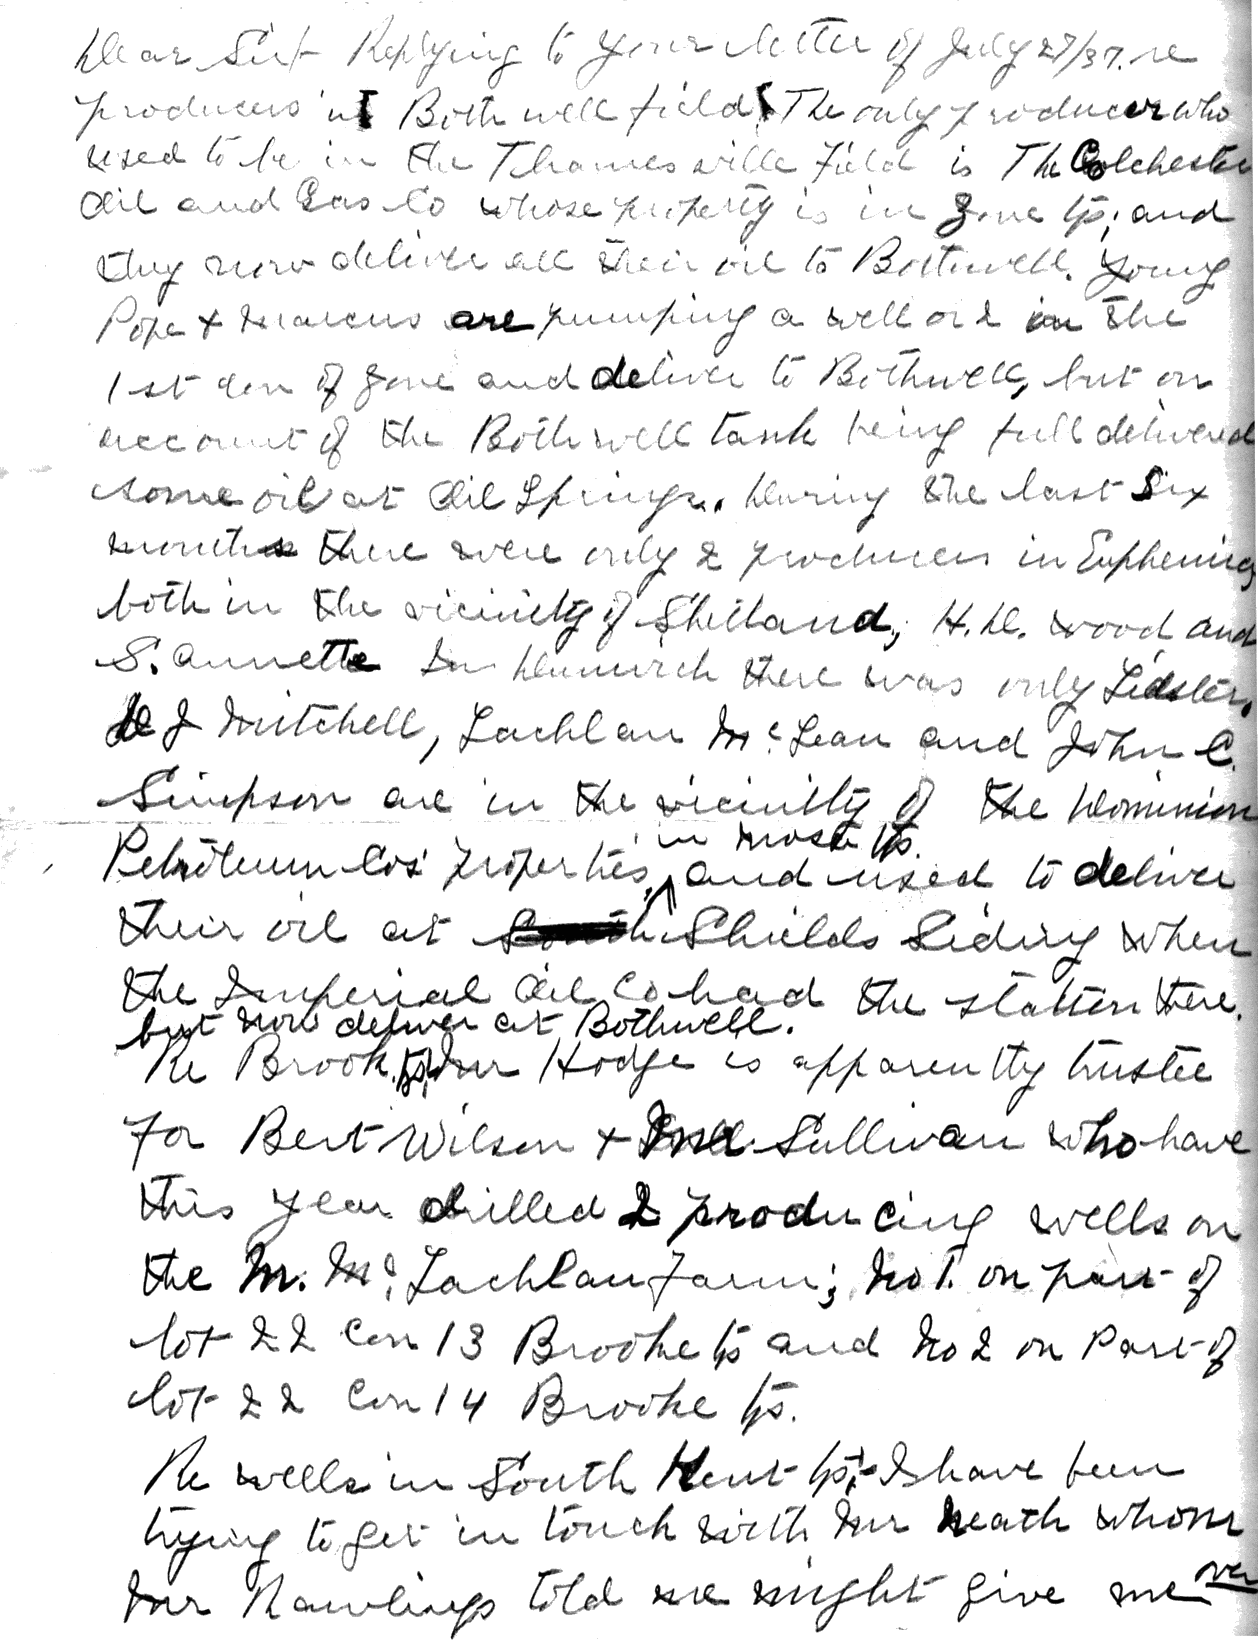 Dear Sir:- Replying to your letter of July 27/37. re
producers in Bothwell field, The only producer who
used to be in the Thamesville Field is The Colchester
Oil and Gas Co whose property is in Zone tp; and
they now deliver all their oil to Bothwell. Young
Pope & Marcus are pumping a well on 2 in the
1st con of Zone and deliver to Bothwell, but on
account of the Bothwell tank being full delivered
some oil at Oil Springs. During the last six
months there were only 2 producers in Euphemia,
both in the vicinity of Shetland, H.D. Wood and
S. Annette In Dunwich there was only Lidster.
D J Mitchell, Lachlan McLean and John C.
Simpson are in the vicinity of the Dominion
Petroleum Cos' properties, in Mosa tp. and used to deliver
their oil at Shields Siding when
the Imperial Oil Co had the station there,
but now deliver at Bothwell.
Re Brook tp. Mr Hodge is apparently trustee
for Bert Wilson & Sullivan who have
this year drilled 2 producing wells on
the M. McLachlan Farm; No 1. on part of
lot 22 Con 13 Brooke tp and No 2 on Part of
lot 22 Con 14 Brooke tp.
Re wells in South Kent tp;- I have been
trying to get in touch with Mr Heath whom
Mr Rawlings told me might give me
over